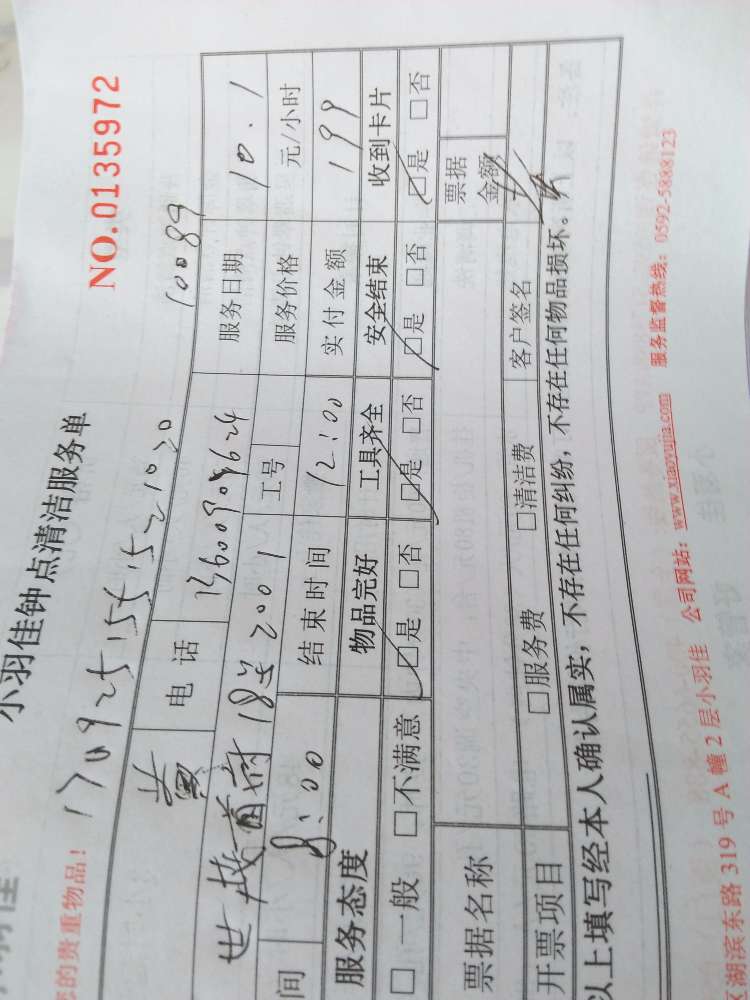 NO.0135972
小羽佳钟点清洁服务单
您的贵重物品!
10089
黄 电话 服务日期 10.1
世茂首府18#2001 工号 服务价格 元/小时
间 8:00 结束时间 12:00 实付金额 199
服务态度 物品完好 工具齐全 安全结束 收到卡片
□一般 □不满意 □是 □否 □是 □否 □是 □否 □是 □否
票据名称 票据金额
开票项目 □服务费 □清洁费 客户签名
以上填写经本人确认属实,不存在任何纠纷,不存在任何物品损坏。
区湖滨东路 319 号 A 幢 2 层小羽佳 公司网站: www.xiaoyujia.com 服务监督热线: 0592-5888123